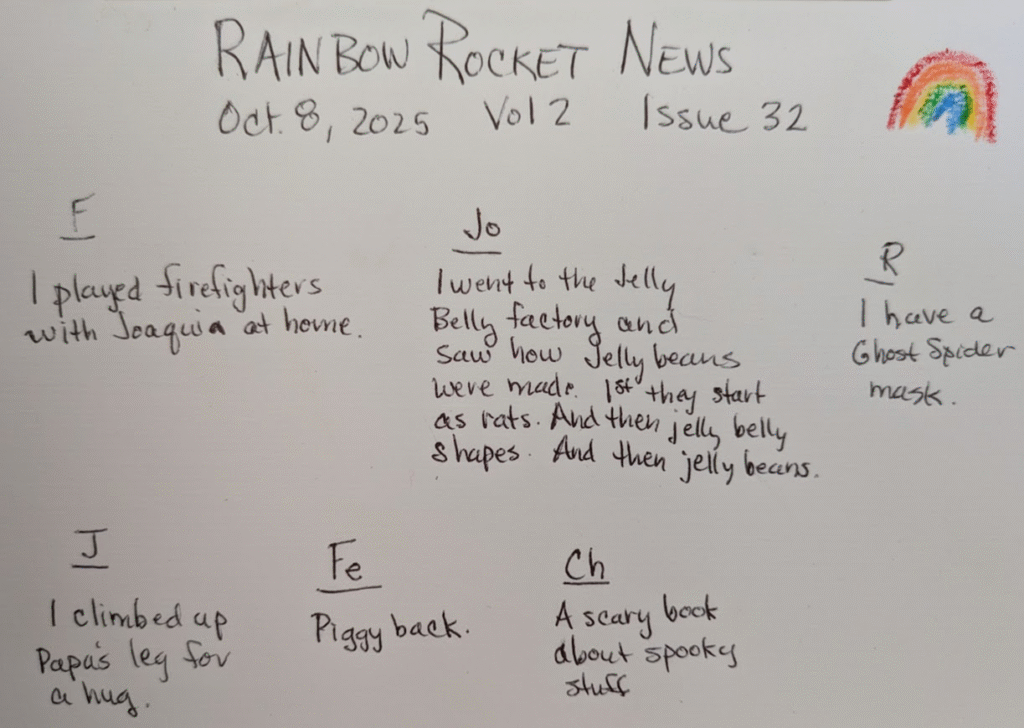 RAINBOW ROCKET NEWS
Oct. 8, 2025 Vol 2 Issue 32
F
I played firefighters
with Joaquin at home.
Jo
I went to the Jelly
Belly factory and
saw how Jelly beans
were made. 1st they start
as rats. And then jelly belly
shapes. And then jelly beans.
R
I have a
Ghost Spider
mask.
J
I climbed up
Papa's leg for
a hug.
Fe
Piggy back.
Ch
A scary book
about spooky
stuff